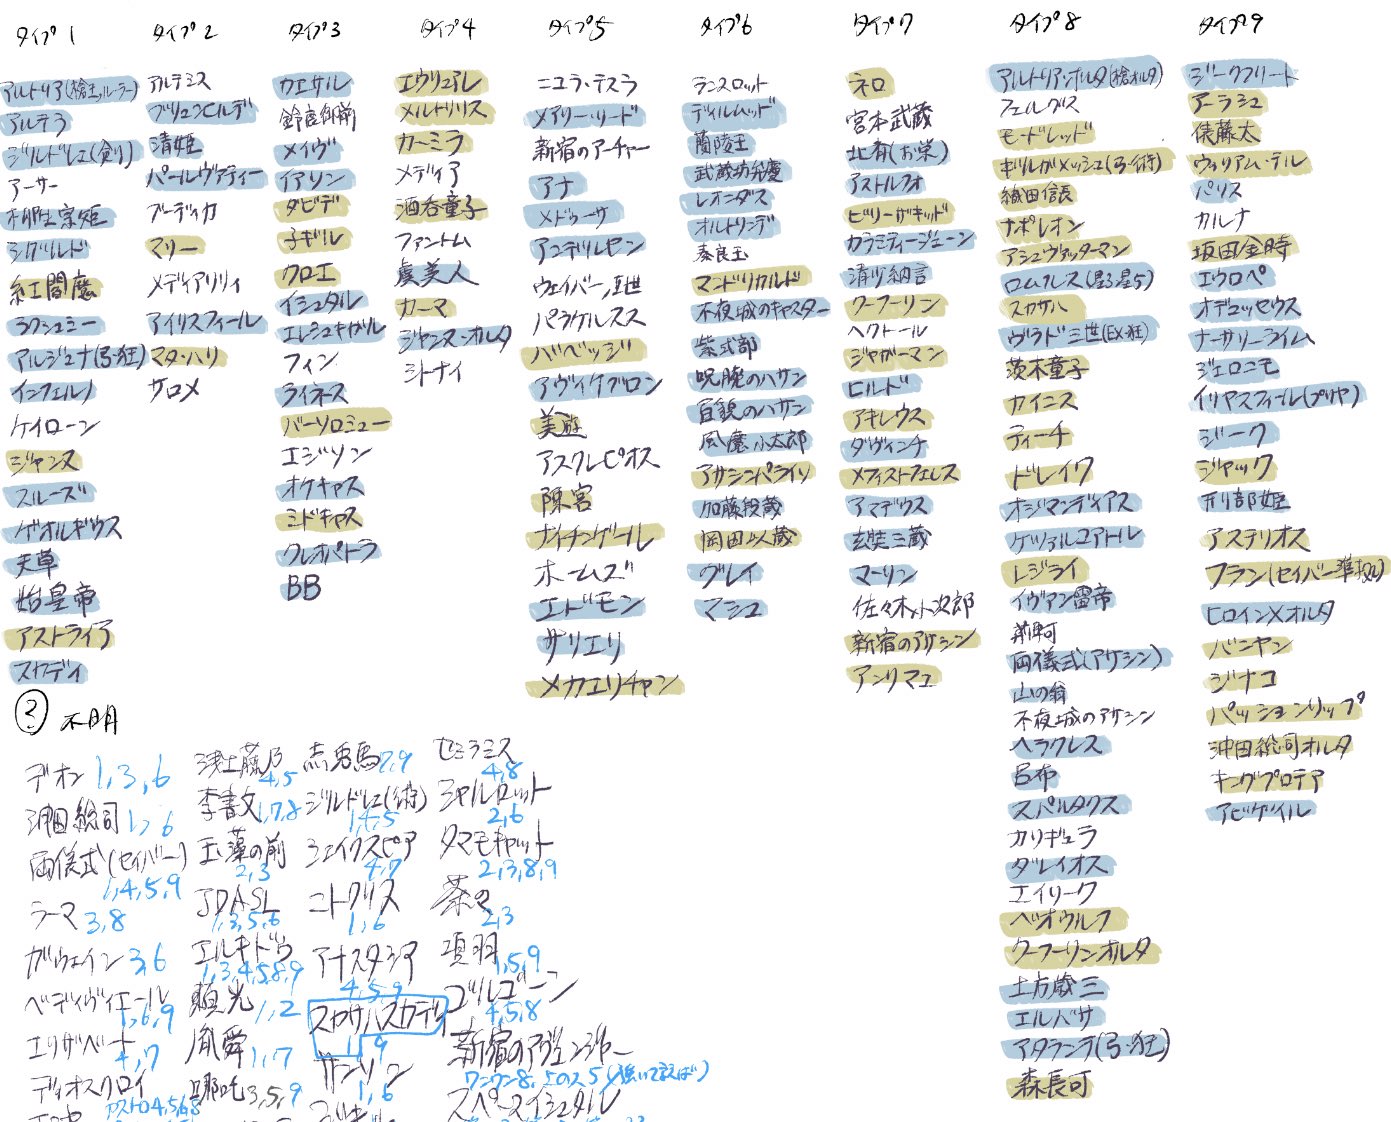 タイプ1
アルトリア(槍士,ルーラー)
アルテラ
ジルドレェ(剣)
アーサー
柳生宗矩
シグルド
紅閻魔
ラクシュミー
アルジュナ(弓・狂)
インフェルノ
ケイローン
ジャンヌ
スルーズ
ゲオルギウス
天草
始皇帝
アストライア
スカディ
タイプ2
アルテミス
ブリュンヒルデ
清姫
パールヴァティー
ブーディカ
マリー
メディアリリィ
アイリスフィール
マタ・ハリ
サロメ
タイプ3
カエサル
鈴鹿御前
メイヴ
イアソン
ダビデ
子ギル
クロエ
イシュタル
エレシュキガル
フィン
ライネス
バーソロミュー
エジソン
オケキャス
ミドキャス
クレオパトラ
BB
タイプ4
エウリュアレ
メルトリリス
カーミラ
メディア
酒呑童子
ファントム
虞美人
カーマ
ジャンヌ・オルタ
シトナイ
タイプ5
ニコラ・テスラ
メアリー・リード
新宿のアーチャー
アナ
メドゥーサ
アンデルセン
ウェイバーⅡ世
パラケルスス
バベッジ
アヴィケブロン
美遊
アスクレピオス
陳宮
ナイチンゲール
ホームズ
エドモン
サリエリ
メカエリチャン
タイプ6
ランスロット
ディルムッド
蘭陵王
武蔵坊弁慶
レオニダス
オルトリンデ
秦良玉
マンドリカルド
不夜城のキャスター
紫式部
呪腕のハサン
百貌のハサン
風魔小太郎
アサシンパライソ
加藤段蔵
岡田以蔵
グレイ
マシュ
タイプ7
ネロ
宮本武蔵
北斎(お栄)
アストルフォ
ビリーザキッド
カラミティージェーン
清少納言
クーフーリン
ヘクトール
ジャガーマン
ヒルド
アキレウス
ダヴィンチ
メフィストフェレス
アマデウス
玄奘三蔵
マーリン
佐々木小次郎
新宿のアサシン
アンリマユ
タイプ8
アルトリア・オルタ(槍オルタ)
フェルグス
モードレッド
ギルガメッシュ(弓・術)
織田信長
ナポレオン
アシュヴァッターマン
ロムルス(星3,星5)
スカサハ
ヴラド三世(EX・狂)
茨木童子
カイニス
ティーチ
ドレイク
オジマンディアス
ケツァルコアトル
レジライ
イヴァン雷帝
荊軻
両儀式(アサシン)
山の翁
不夜城のアサシン
ヘラクレス
呂布
スパルタクス
カリギュラ
ダレイオス
エイリーク
ベオウルフ
クーフーリンオルタ
土方歳三
エルバサ
アタランテ(弓・狂)
森長可
タイプ9
ジークフリート
アーラシュ
俵藤太
ウィリアム・テル
パリス
カルナ
坂田金時
エウロペ
オデュッセウス
ナーサリーライム
ジェロニモ
イリヤスフィール(プリヤ)
ジーク
ジャック
刑部姫
アステリオス
フラン(セイバー準拠)
ヒロインXオルタ
バニヤン
ジナコ
パッションリップ
沖田総司オルタ
キングプロテア
アビゲイル
? 不明
デオン 1,3,6
沖田総司 1,6
両儀式(セイバー)
1,4,5,9
ラーマ 3,8
ガウェイン 3,6
ベディヴィエール
1,6,9
エリザベート
4,7
ディオスクロイ
浅上藤乃
4,5
李書文 1,7,8
玉藻の前
2,3
JDASL
1,3,5,6
エルキドゥ
1,3,4,5,8,9
頼光 1,2
胤舜 1,7
哪吒 3,5,9
赤兎馬 7,9
ジルドレェ(術)
1,4,5
シェイクスピア
4,7
ニトクリス
1,6
アナスタシア
4,5,9
スカサハスカディ
1,9
サンソン
1,6
セミラミス
4,8
シャルロット
2,6
タマモキャット
2,3,8,9
茶々
2,3
項羽 1,5,9
ゴルゴーン
4,5,8
新宿のアヴェンジャー
ワンワン8,上の人5(強いて言えば)
スペースイシュタル